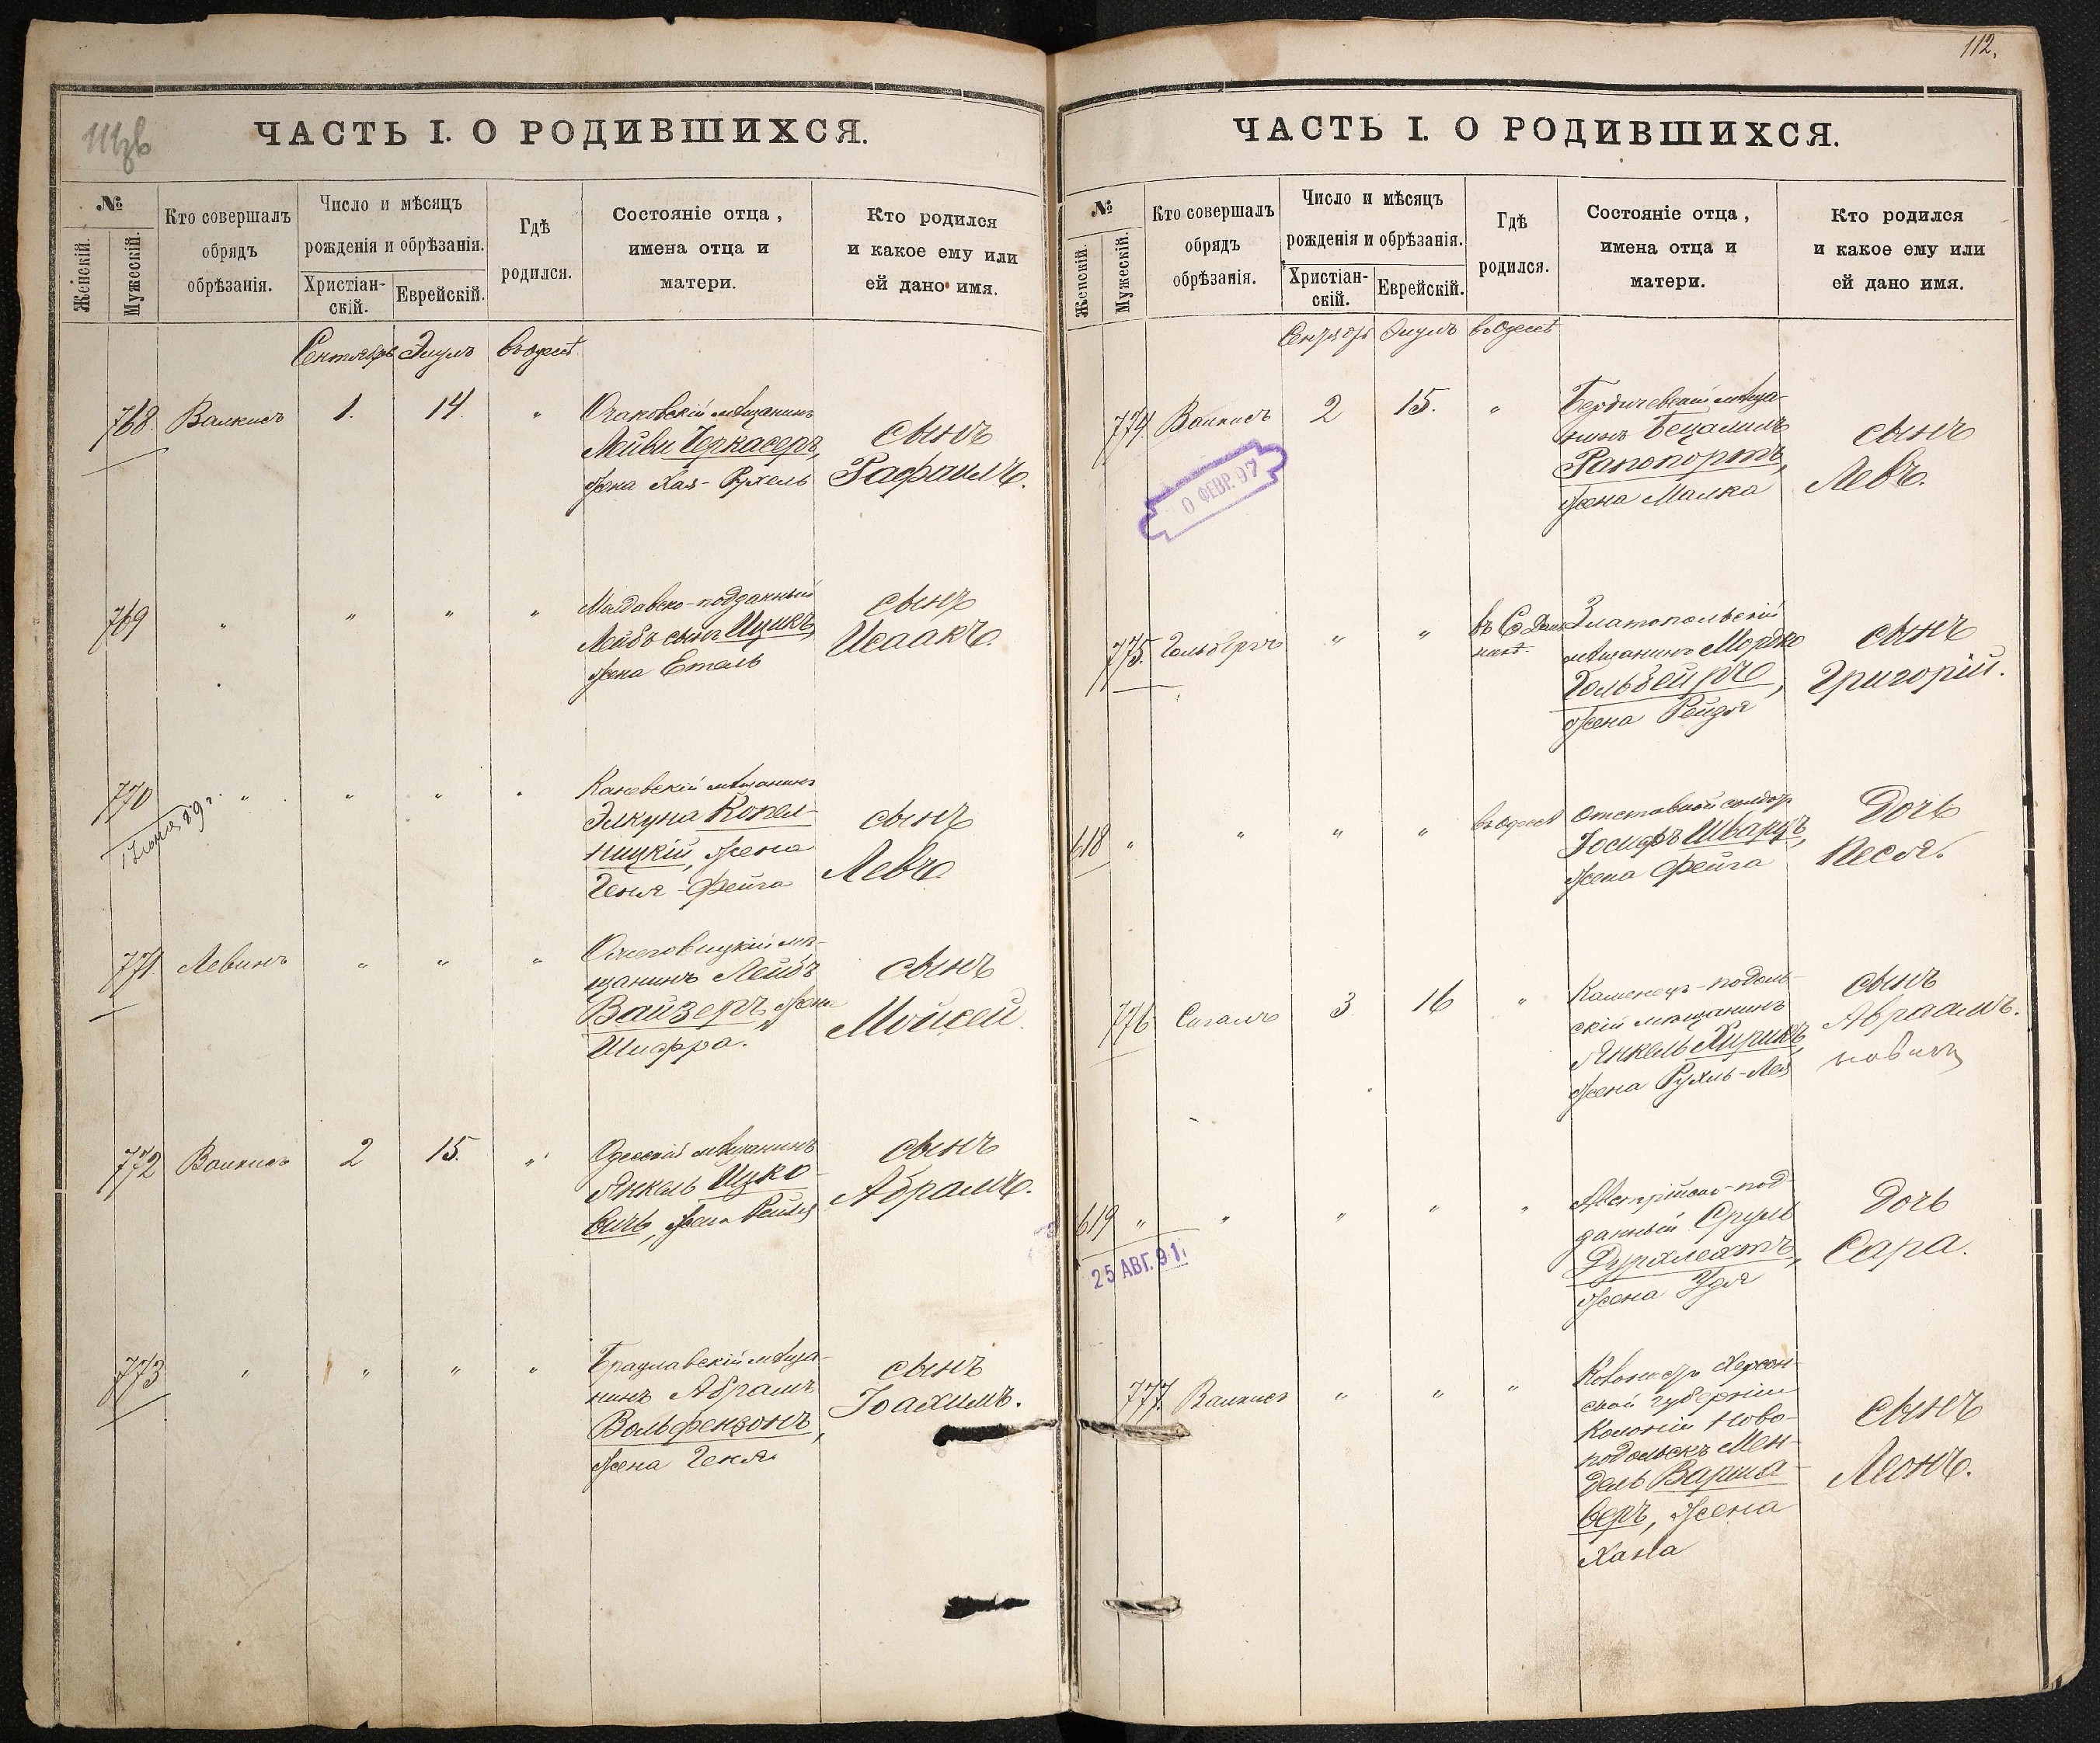 111об
ЧАСТЬ I. О РОДИВШИХСЯ.
№
Женскій.
Мужескій.
Кто совершалъ
обрядъ
обрѣзанія.
Число и мѣсяцъ
рожденія и обрѣзанія.
Христіан-
скій.
Еврейскій.
Гдѣ
родился.
Состояніе отца,
имена отца и
матери.
Кто родился
и какое ему или
ей дано имя.
Сентябрь Элулъ въ Одессѣ
768. Валкисъ 1. 14. "
Очаковскій мѣщанинъ
Лейви Черкасеръ,
жена Хая-Рухель
сынъ
Рафаилъ.
769 " " " "
Молдавско-подданный
Лейбъ сынъ Ицика,
жена Етель
сынъ
Исаакъ.
770 " " " "
Каневскій мѣщанинъ
Элкуна Копел-
ницкій, жена
Геня-Фейга
сынъ
Левъ
771 Левинъ " " "
мѣ-
щанинъ Лейбъ
Вайзеръ, жена
Шифра.
сынъ
Мойсей
772 Валкисъ 2 15. "
Одесскій мѣщанинъ
Янкель Ицко-
вичъ, жена Рейзя
сынъ
Абрамъ.
773 " " " "
Брацлавскій мѣща-
нинъ Абрамъ
Вольфензонъ,
жена Геня
сынъ
Іоахимъ.
112.
ЧАСТЬ I. О РОДИВШИХСЯ.
№
Женскій.
Мужескій.
Кто совершалъ
обрядъ
обрѣзанія.
Число и мѣсяцъ
рожденія и обрѣзанія.
Христіан-
скій.
Еврейскій.
Гдѣ
родился.
Состояніе отца,
имена отца и
матери.
Кто родился
и какое ему или
ей дано имя.
Сентябрь Элулъ въ Одессѣ
774 Валкисъ 2 15. "
0 ФЕВР. 97
Бердичевскій мѣща-
нинъ Бецалель
Рапопортъ,
жена Малка
сынъ
Левъ.
775. Гольдбергъ " "
Златопольскій
мѣщанинъ Мордко
Гольбейръ,
жена Рейзя
сынъ
Григорій.
618 " " " " въ Одессѣ
Отставной солдатъ
Іосифъ Шварцъ,
жена Фейга
Дочь
Песя.
776 Сигалъ 3 16 "
Каменецъ-подоль-
скій мѣщанинъ
Янкель Хирикъ,
жена Рухль-Лея
сынъ
Авраамъ.
619 " " " " "
25 АВГ. 91.
Австрійско-под-
данный Сруль
Дурхлехтъ,
жена Удя
Дочь
Сара.
777. Валкисъ " " "
Колонистъ Херсон-
ской губерніи
Колоніи Ново-
подольскъ Мен-
дель Варша-
веръ, жена
Хана
сынъ
Леонъ.